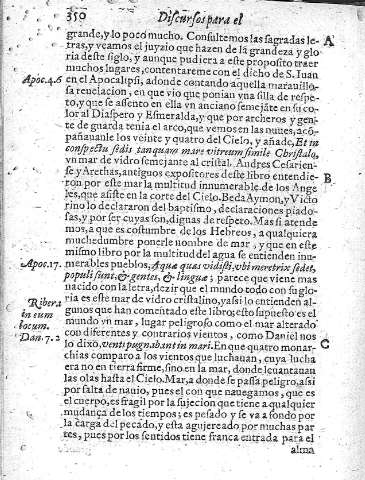 350 Discursos para el
grande, y lo poco mucho. Consultemos las sagradas le- A
tras, y veamos el juyzio que hazen de la grandeza y glo
ria deste siglo, y aunque pudiera a este proposito traer
muchos lugares, contentareme con el dicho de S. Iuan
Apoc. 4.6 en el Apocalipsi, adonde contando aquella marauillo-
sa reuelacion, en que vio que ponian vna silla de respe-
to, y que se assento en ella vn anciano semejãte en su co-
lor al Diaspero y Esmeralda, y que por archeros y gen-
te de guarda tenia el arco, que vemos en las nuues, acõ-
pañauanle los veinte y quatro del Cielo, y añade, Et in
conspectu sedis tanquam mare vitreum simile Christalo,
vn mar de vidro semejante al cristal. Andres Cesarien-
se y Arethas, antiguos expositores deste libro entendie- B
ron por este mar la multitud innumerable de los Ange
les, que asiste en la corte del Cielo. Beda Aymon, y Victo
rino lo declararon del baptismo, declaraciones piado-
sas, y por ser cuyas son, dignas de respeto. Mas si atende
mos, a que es costumbre de los Hebreos, a qualquiera
muchedumbre ponerle nombre de mar, y que en este
mismo libro por la multitud del agua se entienden inu-
Apoc. 17. merables pueblos, Aquæ quas vidisti, vbi meretrix sedet,
populi sunt, & gentes, & linguæ; parece que viene mas
nacido con la letra, dezir que el mundo todo con su glo
Riber. ria es este mar de vidro cristalino, y assi lo entienden al-
in eum gunos que han comentado este libro; esto supuesto es el
locum. mundo vn mar, lugar peligroso como el mar alterado
Dan. 7.2 con diferentes y contrarios vientos, como Daniel nos
lo dixo, venti pugnabant in mari. En que quatro monar- C
chias comparo a los vientos que luchauan, cuya lucha
era no en tierra firme, sino en la mar, donde leuantauan
las olas hasta el Cielo. Mar, a donde se passa peligro, assi
por falta de nauio, pues el con que nauegamos, que es
el cuerpo, es fragil por la sujecion que tiene a qualquier
mudança de los tiempos; es pesado y se va a fondo por
la carga del pecado, y esta agujereado por muchas par
tes, pues por los sentidos tiene franca entrada para el
alma